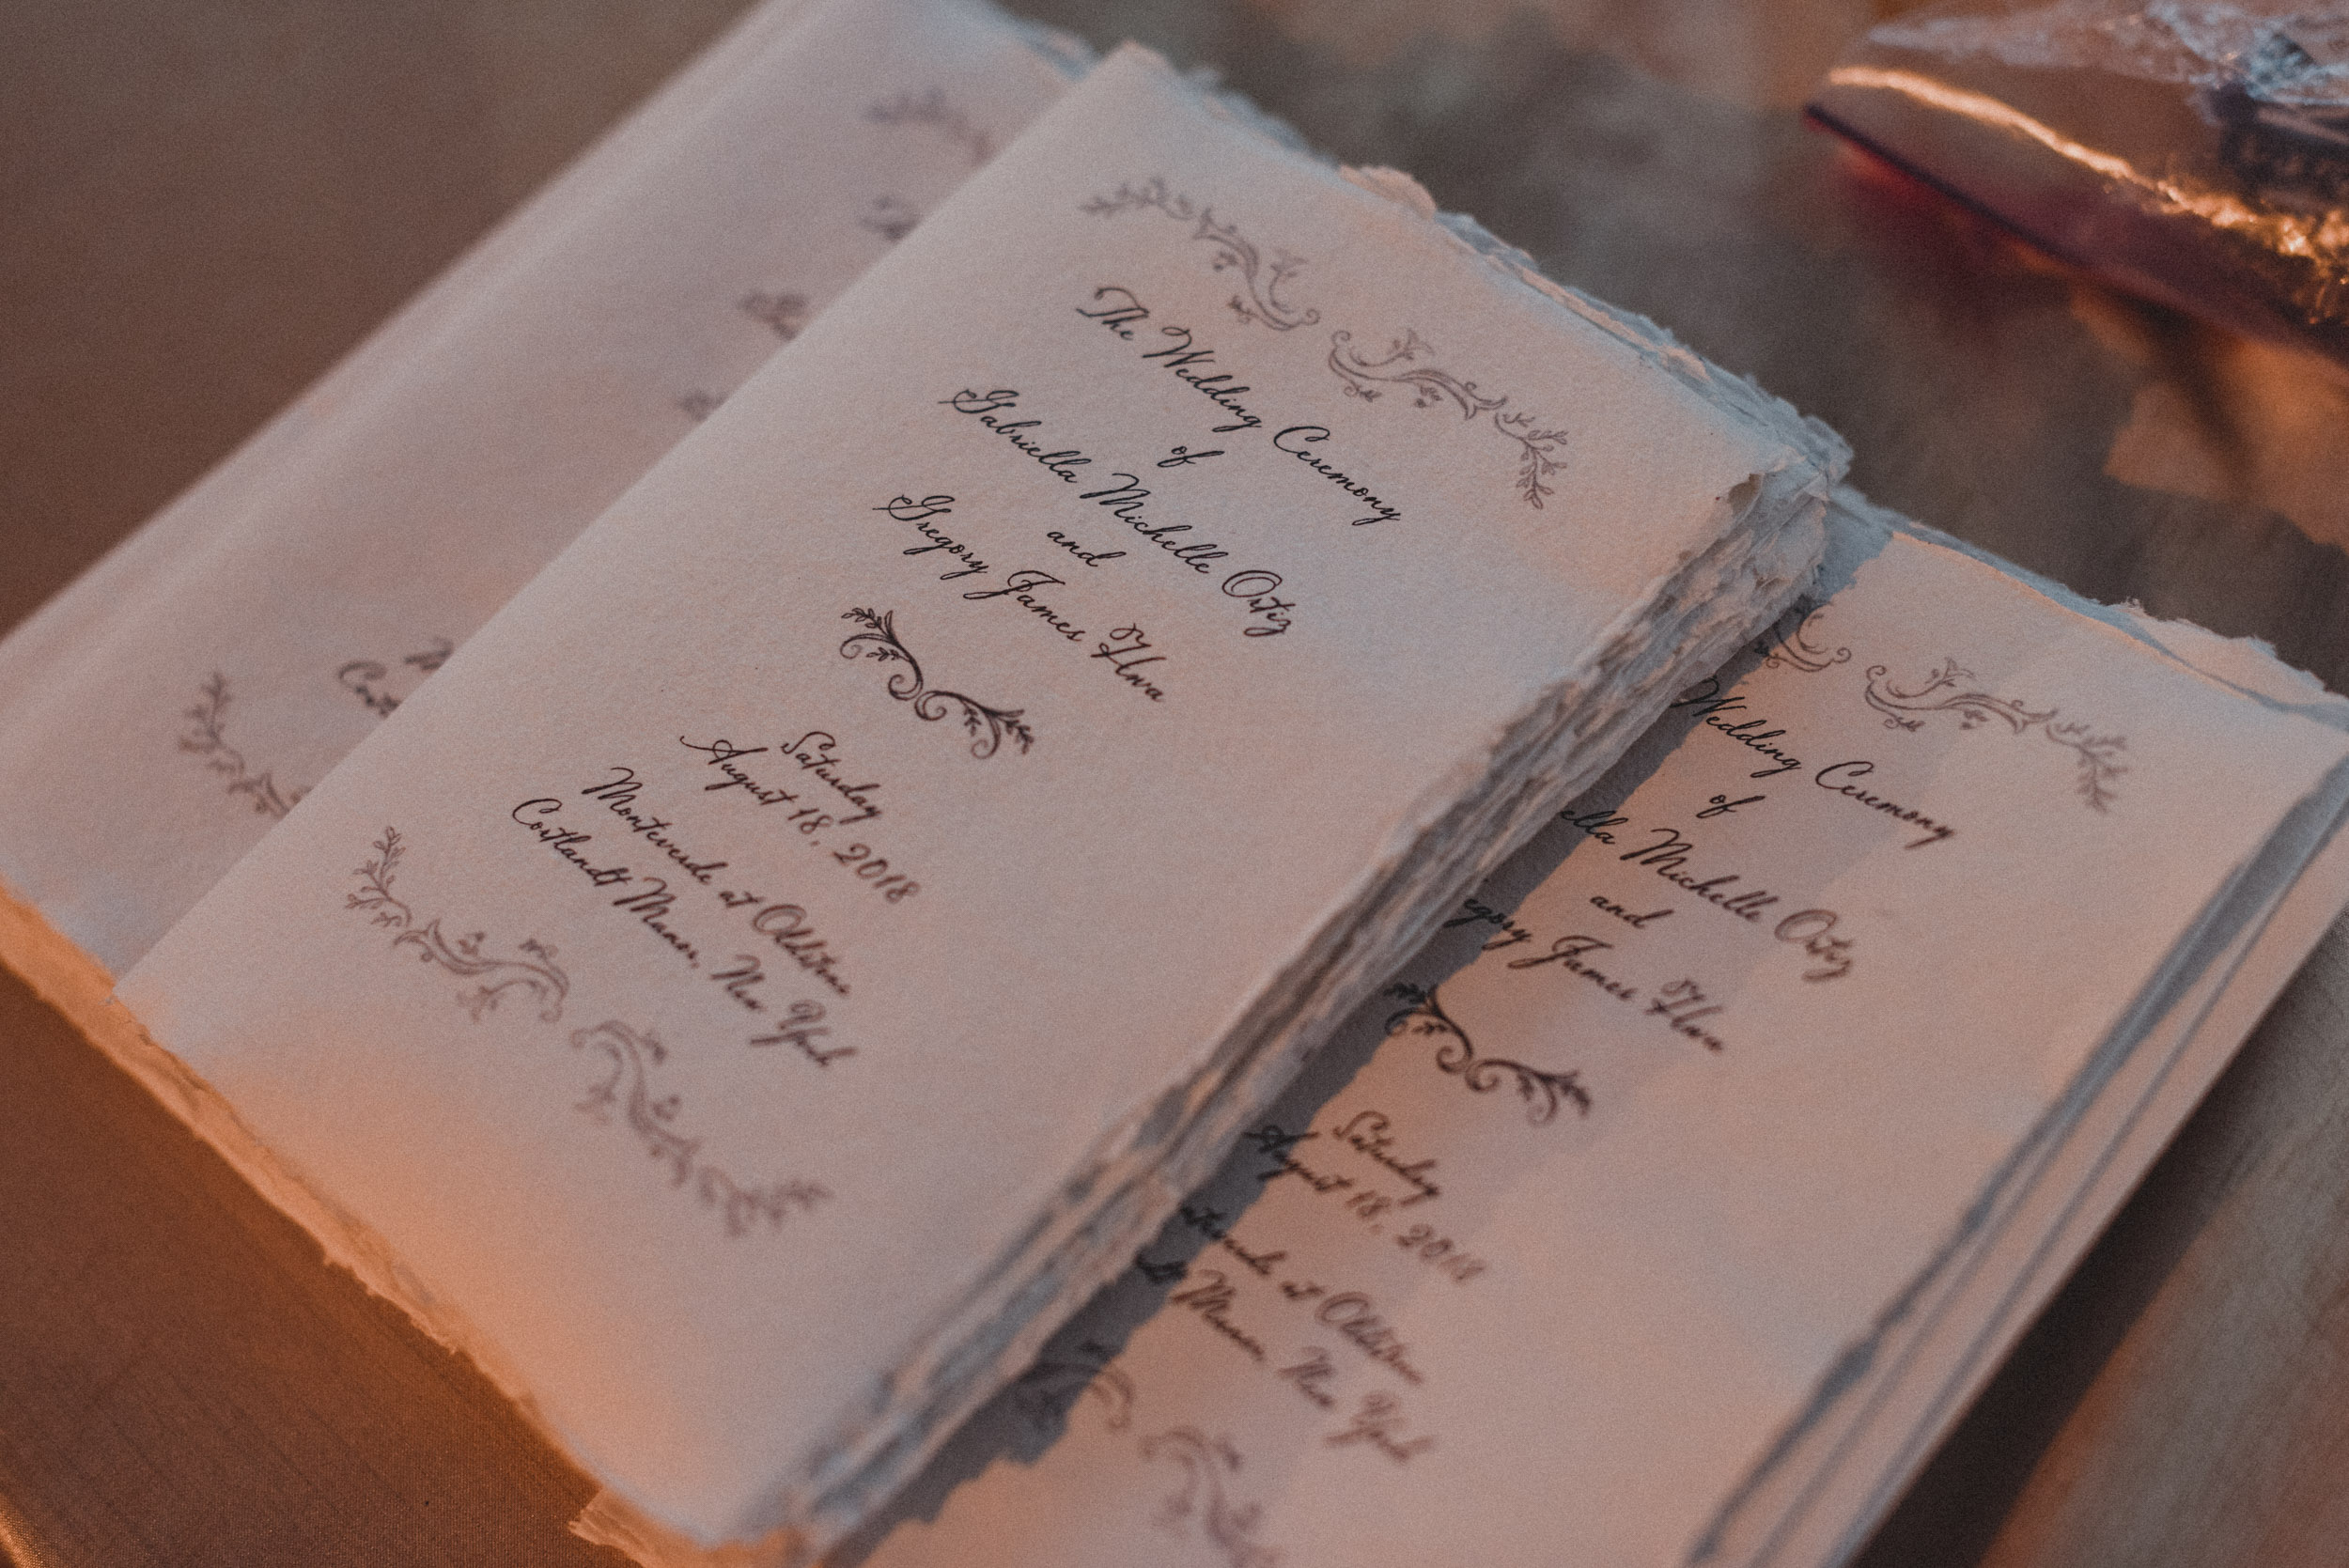 The Wedding Ceremony
of
Gabriella Michelle Ortiz
and
Gregory James Hwa
Saturday
August 18, 2018
Monteverde at Oldstone
Cortlandt Manor, New York
Wedding Ceremony
of
ella Michelle Ortiz
and
egory James Hwa
Saturday
August 18, 2018
nteverde at Oldstone
Manor, New York